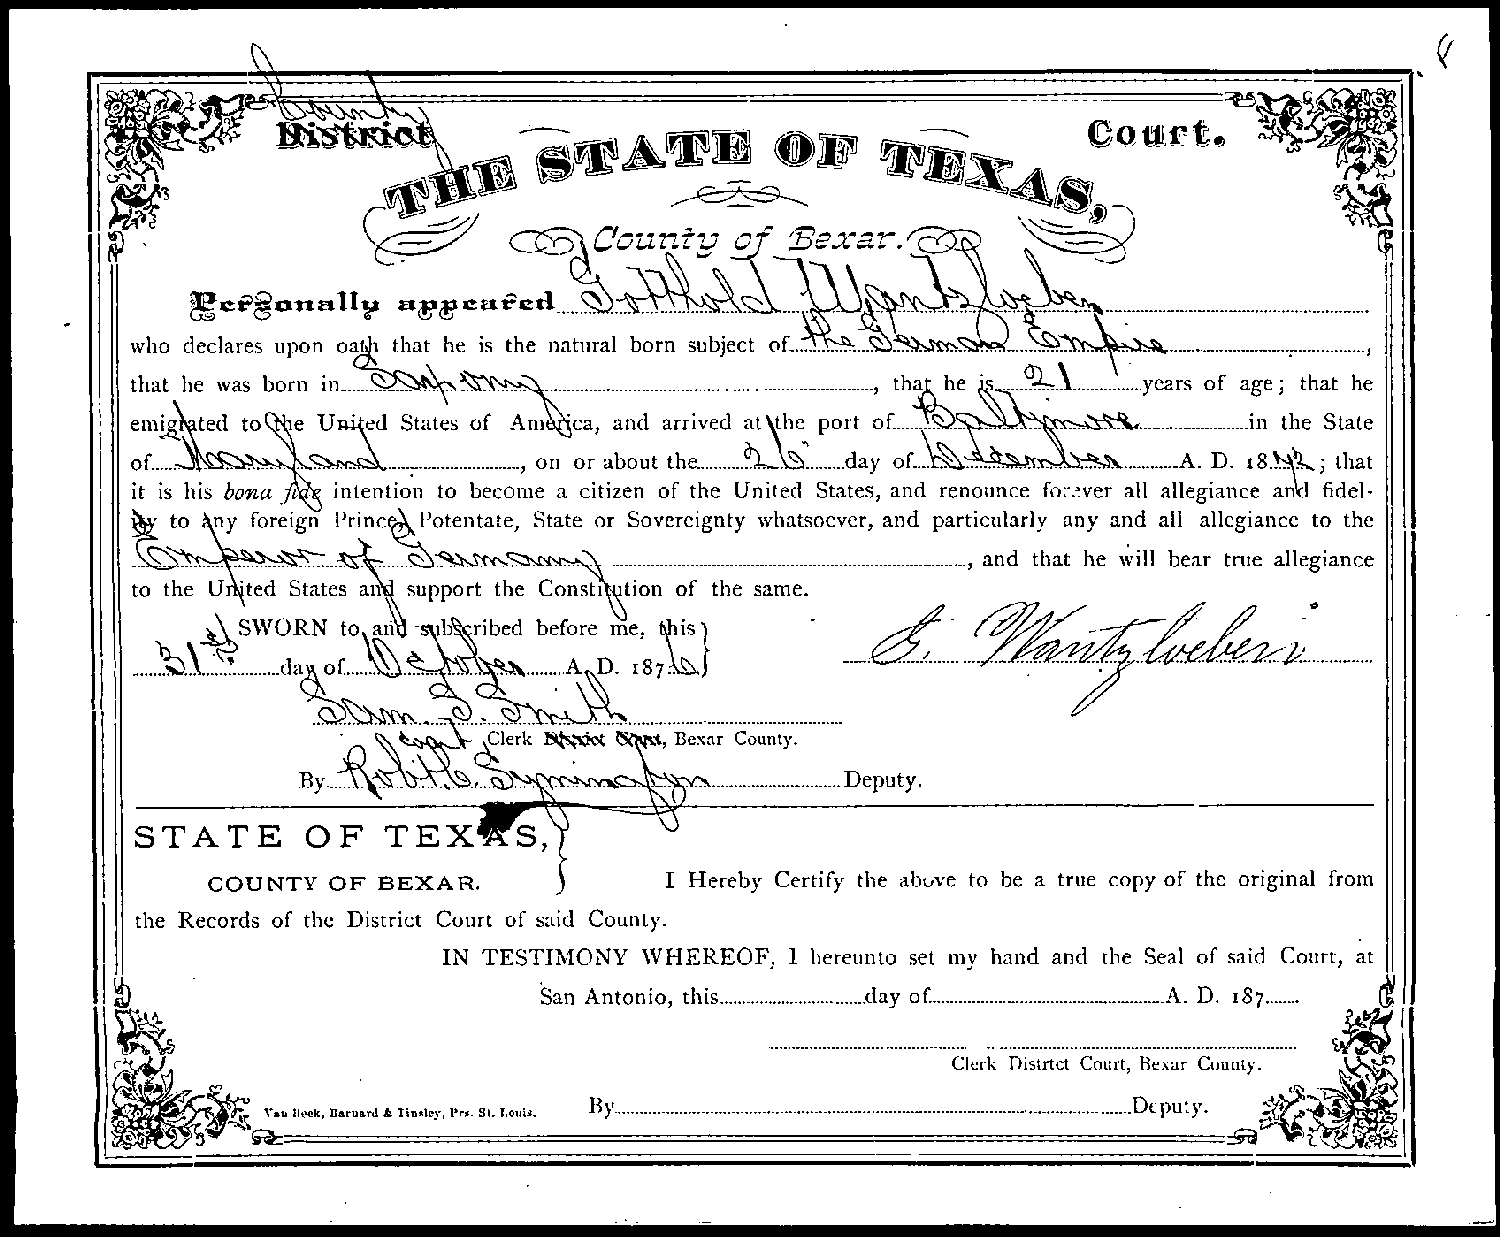 8
County
District Court.
THE STATE OF TEXAS,
County of Bexar.
Personally appeared Gotthold Wantzloeben
who declares upon oath that he is the natural born subject of the German Empire,
that he was born in Saxony, that he is 21 years of age; that he
emigrated to the United States of America, and arrived at the port of Baltimore in the State
of Maryland, on or about the 26 day of December A. D. 18; that
it is his bona fide intention to become a citizen of the United States, and renounce forever all allegiance and fidel-
ity to any foreign Prince, Potentate, State or Sovereignty whatsoever, and particularly any and all allegiance to the
Emperor of Germany, and that he will bear true allegiance
to the United States and support the Constitution of the same.
SWORN to and subscribed before me, this
31st day of October A. D. 1876
G. Wantzloeben
Sam. S. Smith
Court
Clerk District Court, Bexar County.
By Robt. C. Symington Deputy.
STATE OF TEXAS,
COUNTY OF BEXAR.
I Hereby Certify the above to be a true copy of the original from
the Records of the District Court of said County.
IN TESTIMONY WHEREOF, I hereunto set my hand and the Seal of said Court, at
San Antonio, this day of A. D. 187
Clerk District Court, Bexar County.
Van Beek, Barnard & Tinsley, Prs. St. Louis.
By Deputy.